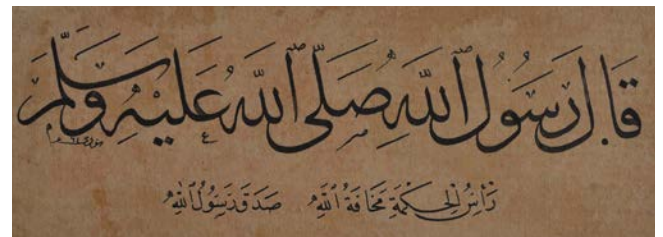 قَالَ رَسُولُ ٱللَّهِ صَلَّى ٱللَّهُ عَلَيْهِ وَسَلَّمَ
رَأْسُ الْحِكْمَةِ مَخَافَةُ ٱللَّهِ صَدَقَ رَسُولُ ٱللَّهِ